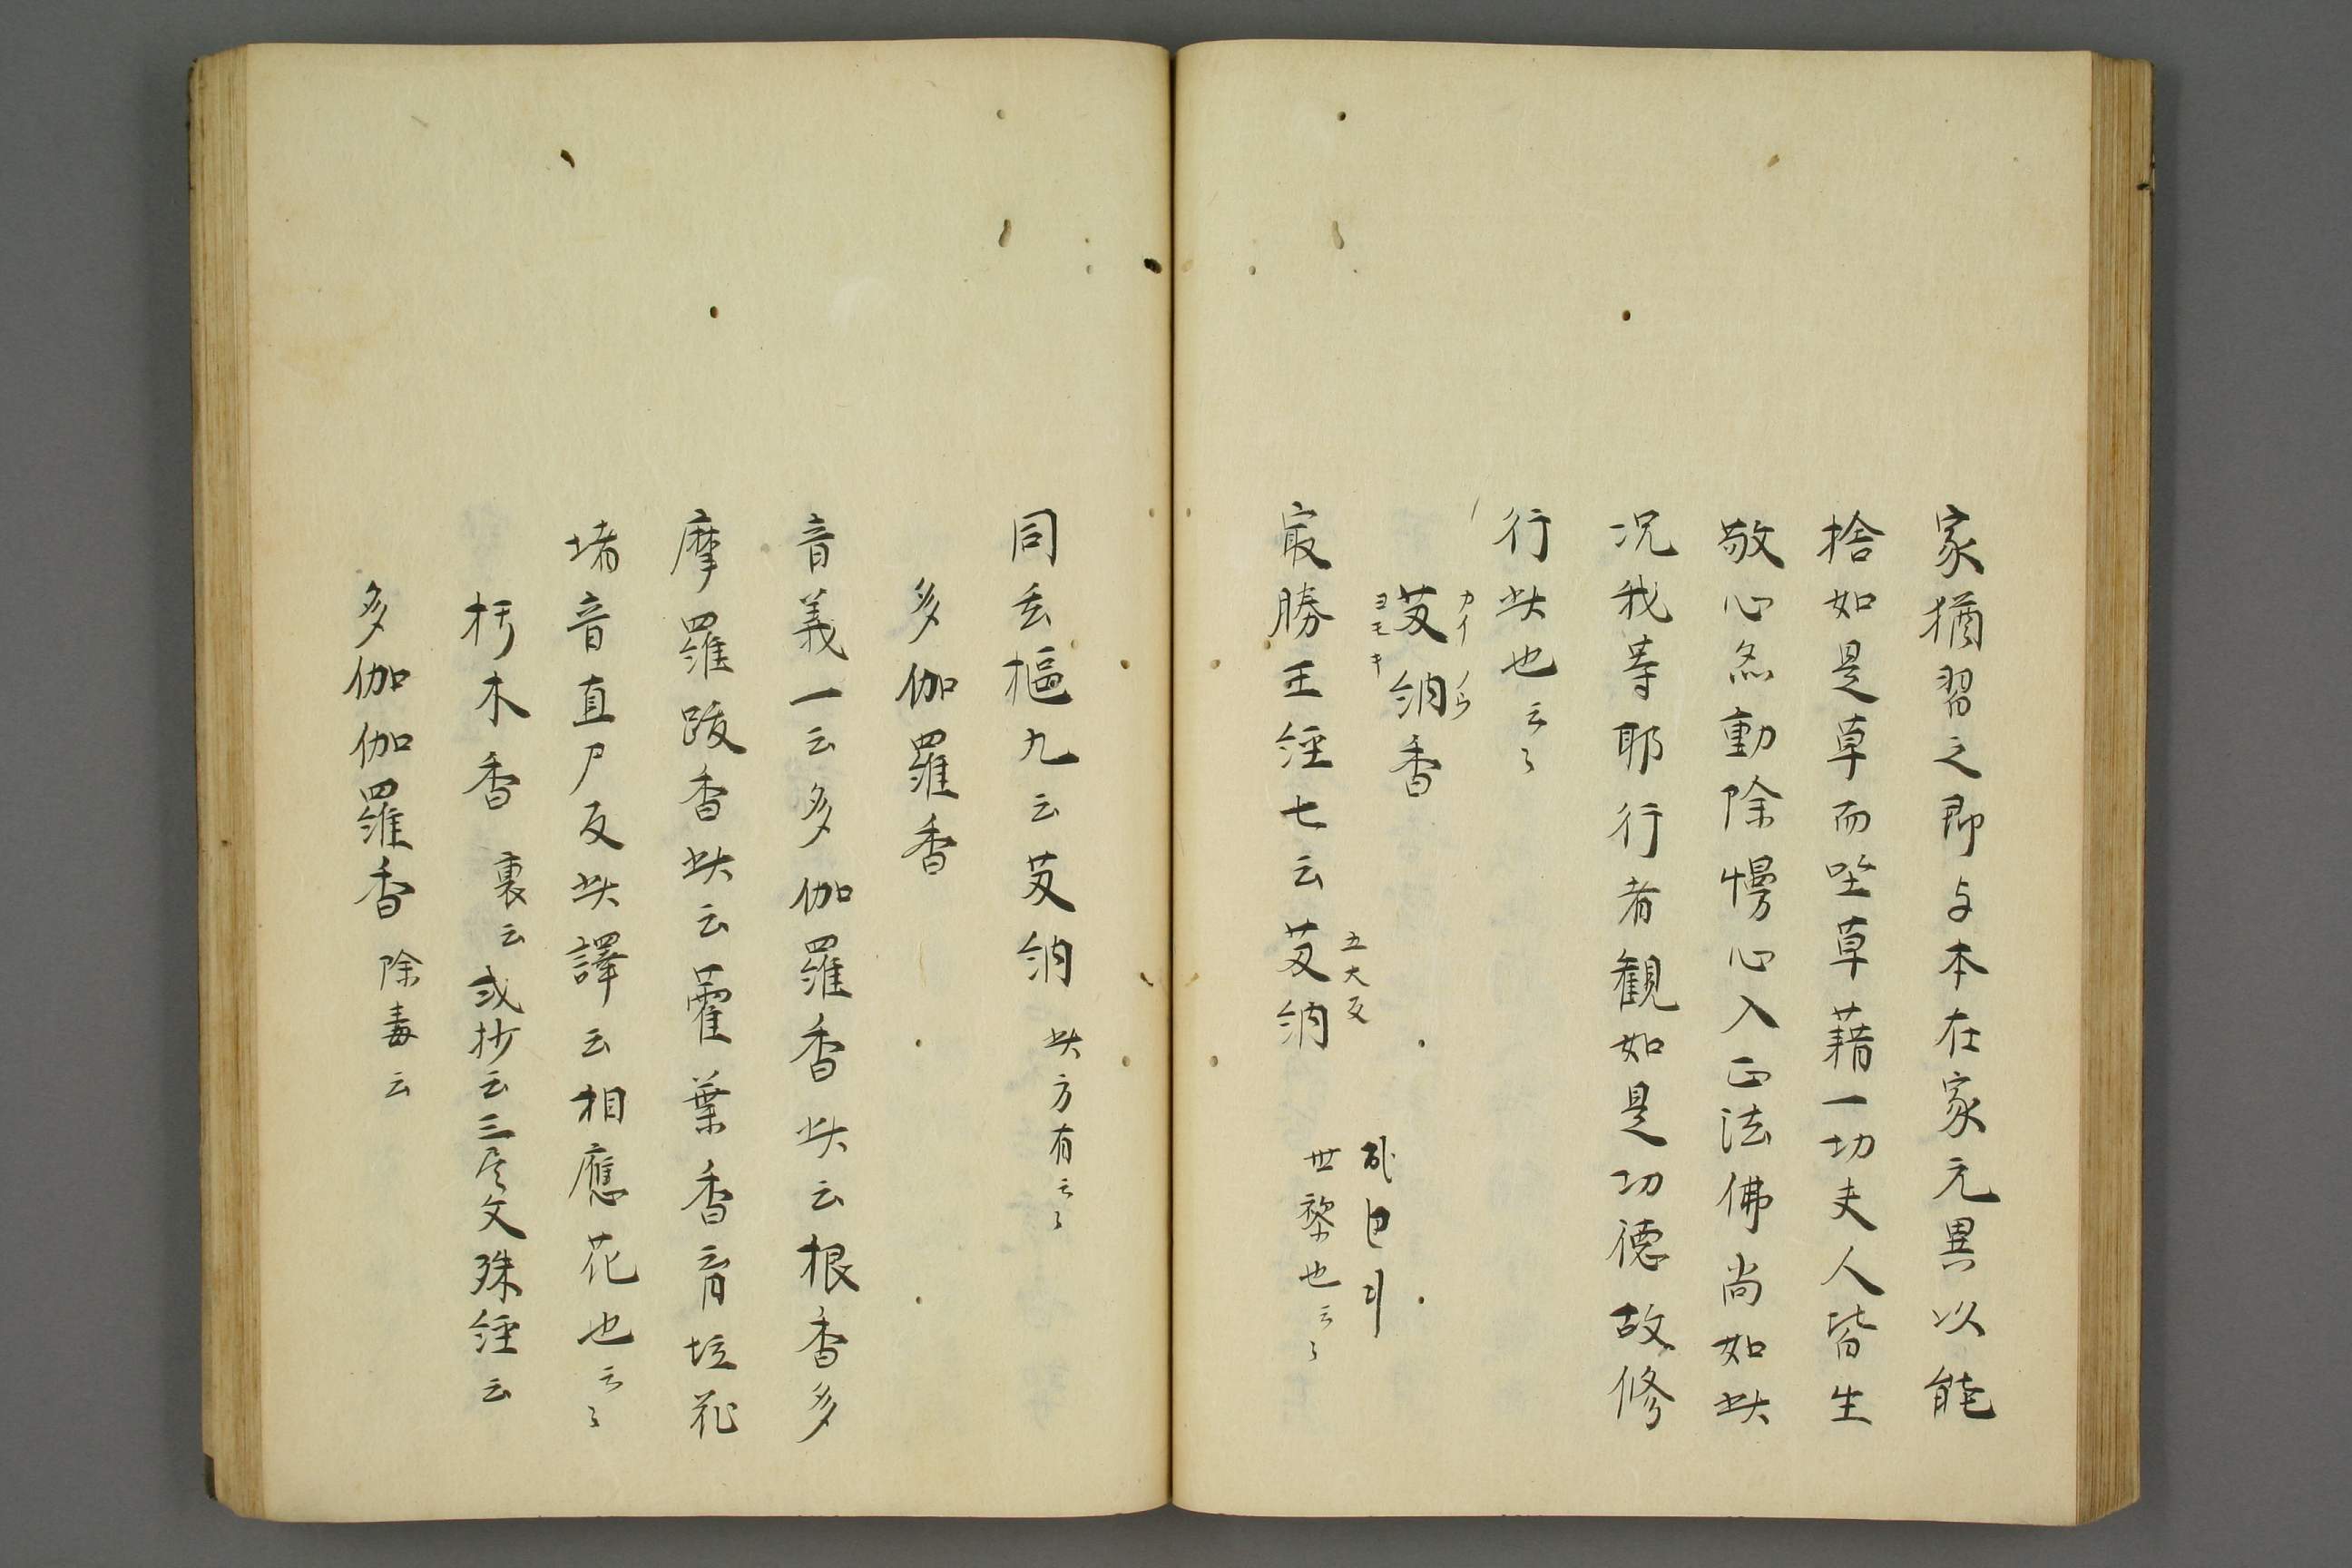 家猶習之即与本在家元異以能
捨如是草而坐草藉一切夫人皆生
敬心亦動除慢心入正法佛尚如此
況我等耶行者観如是功徳故修
行此也云々
艾納香
カイ
ヨモキ
最勝王経七云艾納
五大反
世黎也云々
同玄樞九云艾納 此方有云々
多伽羅香
音義一云多伽羅香此云根香多
摩羅跋香此云霍葉香音垃花
堵音直尸反此譯云相應花也云々
朽木香 裏云或抄云三文殊経云
多伽伽羅香 除毒云